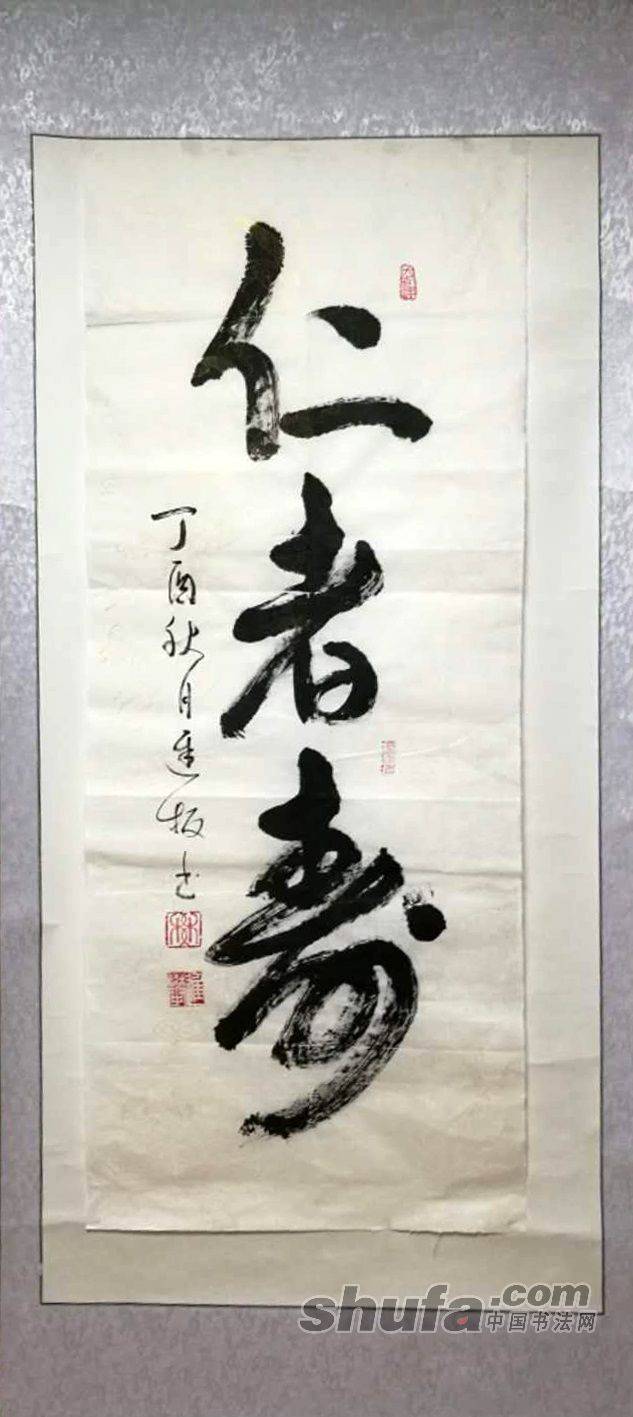 仁者寿
丁酉秋月进板书
shufa.com
中国书法网